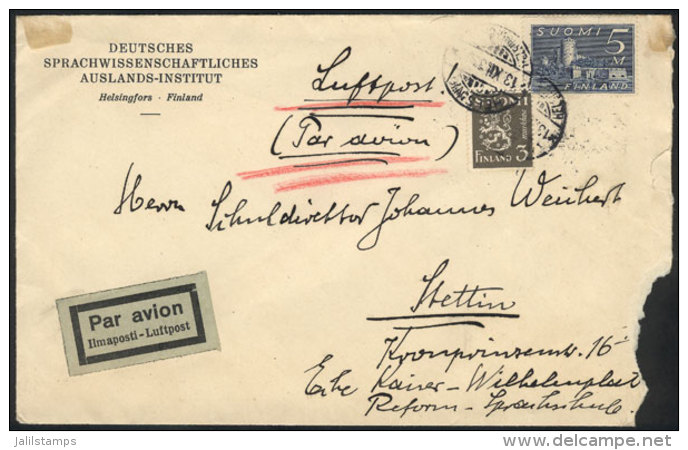 DEUTSCHES
SPRACHWISSENSCHAFTLICHES
AUSLANDS-INSTITUT
Helsingfors · Finland
Luftpost
(Par avion)
SUOMI 5
M
FINLAND
3
FINLAND
Herrn Schuldirektor Johannes Weichert
Stettin
Kronprinzenstr. 16
Ecke Kaiser-Wilhelmplat
Reform-Sprachschule.
Par avion
Ilmaposti-Luftpost
jalilstamps
delcampe.net